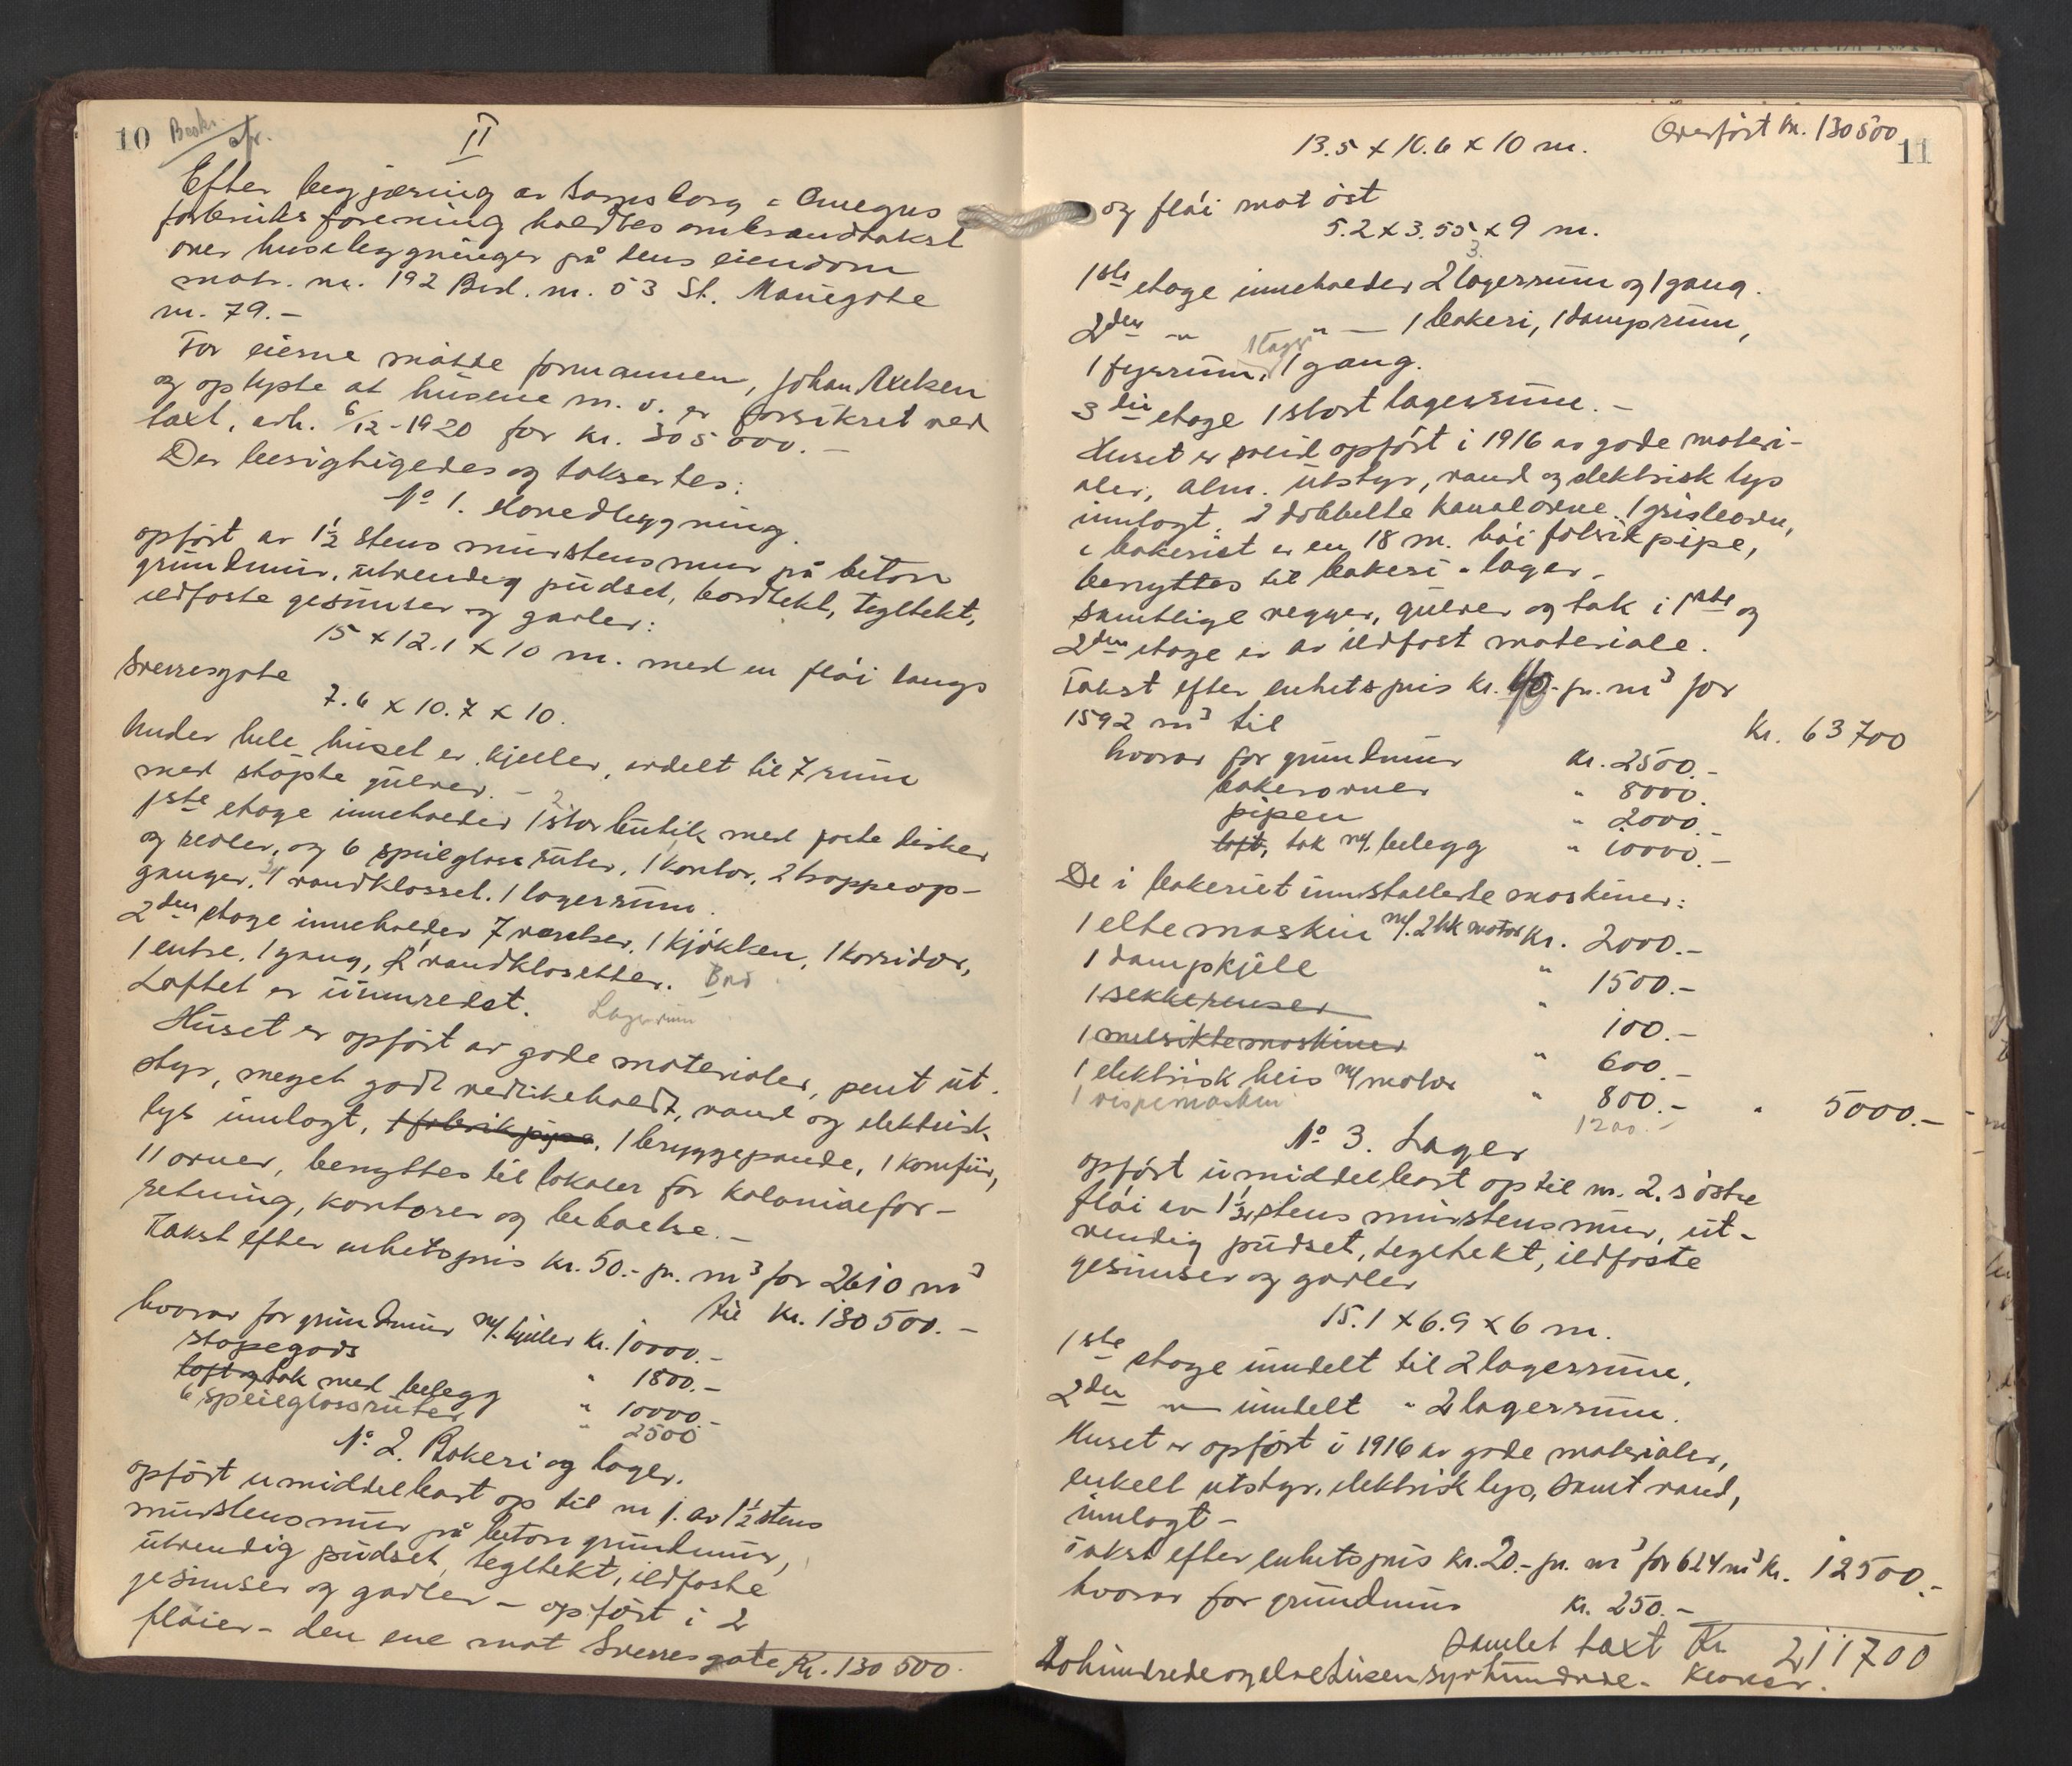 10 Beskr. afr.
II
Efter begjæring av Sarpsborg & Omegns
forbruksforening holdtes ombrandtakst
over husebygninger på dens eiendom
matr. nr. 192 Brd. nr. 53 St. Mariegate
nr. 79.-
For eierne møtte formannen, Johan
og oplyste at husene m. v. er forsikret ved
taxt, avh. 6/12-1920 for kr. 305000.-
Der besigtigedes og taksertes:
No 1. Hovedbygning.
opført av 1½ stens murstensmur på beton
grundmur, utvendig pudset, bordtekt, tegltekt,
ildfaste gesimser og gavler:
15 x 12.1 x 10 m. med en fløi langs
Sverresgate
7.6 x 10.7 x 10.
Under hele huset er kjeller, avdelt til 7 rum
med støpte gulver. -
1ste etage inneholder 1 stor butik med faste disker
og reoler, og 6 speilglassruter, 1 kontor, 2 trappeop-
ganger, 1 vandklosset. 1 lagerrum.
2den etage inneholder 7 værelser, 1 kjøkken, 1 korridor,
1 entre. 1 gang, 2 vandklosetter. Bad
Loftet er uinnredet. Lagerrum
Huset er opført av gode materialer, pent ut-
styr, meget godt vedlikeholdt, vand og elektrisk
lys innlagt, 1 fabrikpipe, 1 bryggepande, 1 komfür,
11 ovner, benyttes til lokaler for kolonialfor-
retning, kontorer og beboelse.-
Takst efter enhetspris kr. 50.- pr. m³ for 2610 m³
til kr. 130500.-
hvorav for grundmur m/. kjeller kr. 10000.-
støpegods " 1800.-
loft og tak med belegg " 10000.-
6 speilglassruter " 2500
No 2. Bakeri og lager.
opført umiddelbart op til nr 1. av 1½ stens
murstensmur på beton grundmur,
utvendig pudset, tegltekt, ildfaste
gesimser og gavler - opført i 2
fløier - den ene mot Sverresgate Kr. 130500.
Overført kr. 130500 11
13.5 x 10.6 x 10 m.
og fløi mot øst
5.2 x 3.55 x 9 m.
3.
1ste etage inneholder 2 lagerrum og 1 gang.
2den " " — 1 bakeri, 1 damprum,
1 lager
1 fyrrum, 1 gang.
3die etage 1 stort lagerrum.-
Huset er solid opført i 1916 av gode materi-
aler, alm. utstyr, vand og elektrisk lys
innlagt. 2 dobbelte kanalovne. 1
i bakeriet er en 18 m. høi fabrikpipe,
benyttes til bakeri & lager.
Samtlige vegger, gulver og tak i 1ste og
2den etage er av ildfast materiale.
Takst efter enhetspris kr. 40.- pr. m³ for
1592 m³ til kr. 63700
hvorav for grundmur kr. 2500.-
bakerovner " 8000.
pipen " 2000.-
loft, tak m/. belegg " 10000.-
De i bakeriet innstallerte maskiner:
1 eltemaskin m/. 2 hk motor kr. 2000.-
1 dampkjele " 1500.-
1 sekkerenser " 100.-
1 melsiktemaskiner " 600.-
1 elektrisk heis m/ motor " 800.- " 5000.-
1 vispemaskin 1200.-
No 3. Lager
opført umiddelbart op til nr. 2.s østre
fløi av 1½ stens murstensmur, ut-
vendig pudset, tegltekt, ildfaste
gesimser og gavler
15.1 x 6.9 x 6 m.
1ste etage inndelt til 2 lagerrum.
2den " inndelt " 2 lagerrum.
Huset er opført i 1916 av gode materialer,
enkelt utstyr, elektrisk lys, samt vand,
innlagt -
Takst efter enhetspris kr. 20.- pr. m³ for 624 m³ kr. 12500.-
hvorav for grundmur kr. 250.-
Samlet taxt Kr 211700
Tohundredeogelvetusensyvhundrede. kroner.